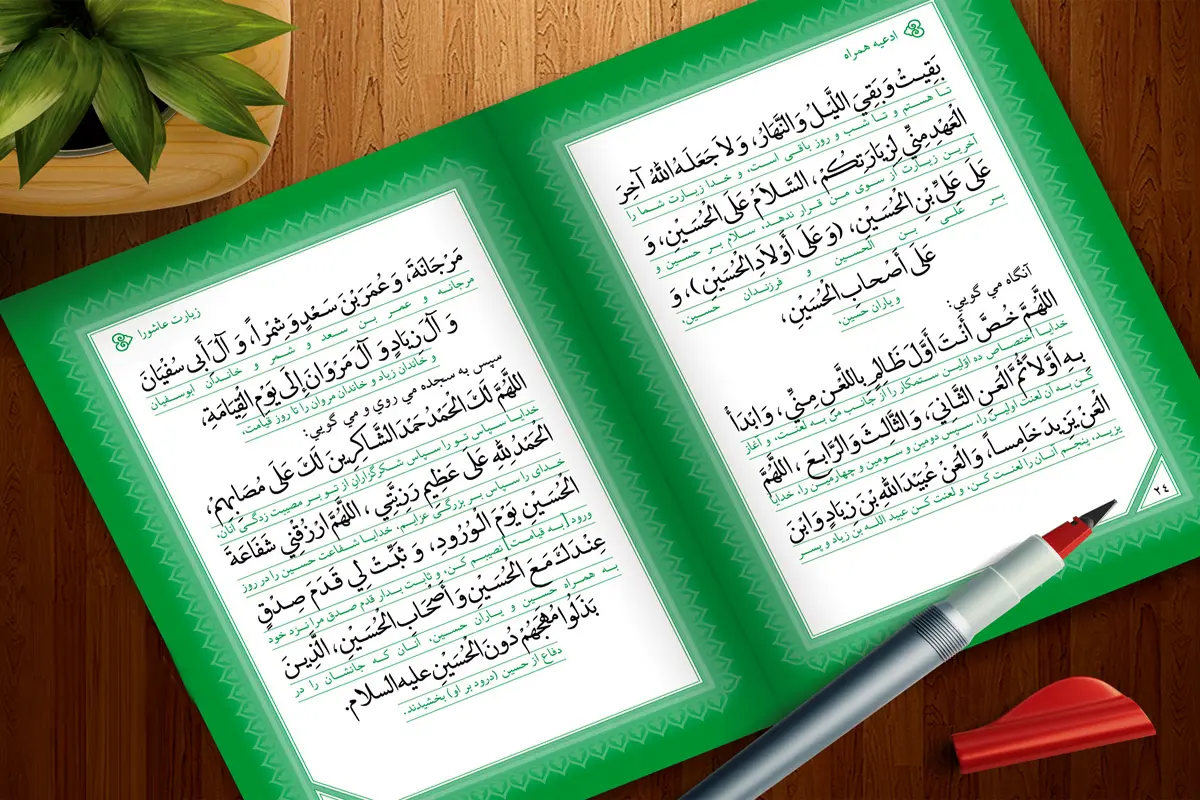 ادعیه همراه
بَقِيتُ وَ بَقِيَ اللَّيْلُ وَ النَّهَارُ، وَ لا جَعَلَهُ اللهُ آخِرَ
تا هستم و تا شب و روز باقی است، و خدا زیارت شما را
الْعَهْدِ مِنِّي لِزِيَارَتِكُمْ، السَّلامُ عَلَى الْحُسَيْنِ، وَ
آخرین زیارت از سوی من قرار ندهد، سلام بر حسین و
عَلَى عَلِيِّ بْنِ الْحُسَيْنِ، (وَ عَلَى أَوْلادِ الْحُسَيْنِ)، وَ
بر علی بن الحسین و فرزندان حسین،
عَلَى أَصْحَابِ الْحُسَيْنِ،
و یاران حسین،
آنگاه می گویی:
اللَّهُمَّ خُصَّ أَنْتَ أَوَّلَ ظَالِمٍ بِاللَّعْنِ مِنِّي، وَ ابْدَأْ
خدایا اختصاص ده اولین ستمکار را از جانب من به لعنت، و آغاز
بِهِ أَوَّلاً ثُمَّ الْعَنِ الثَّانِيَ، وَ الثَّالِثَ وَ الرَّابِعَ ، اللَّهُمَّ
کن به آن لعنت اولین را، سپس دومین و سومین و چهارمین را، خدایا
الْعَنْ يَزِيدَ خَامِساً، وَ الْعَنْ عُبَيْدَ اللهِ بْنَ زِيَادٍ وَ ابْنَ
یزید، پنجم آنان را لعنت کن، و لعنت کن عبید الله بن زیاد و پسر
٢٤
زیارت عاشورا
مَرْجَانَةَ، وَ عُمَرَ بْنَ سَعْدٍ وَ شِمْراً، وَ آلَ أَبِي سُفْيَانَ
مرجانه و عمر بن سعد و شمر و خاندان ابوسفیان
وَ آلَ زِيَادٍ وَ آلَ مَرْوَانَ إِلَى يَوْمِ الْقِيَامَةِ،
و خاندان زیاد و خاندان مروان را تا روز قیامت.
سپس به سجده می روی و می گویی:
اللَّهُمَّ لَكَ الْحَمْدُ حَمْدَ الشَّاكِرِينَ لَكَ عَلَى مُصَابِهِمْ،
خدایا سپاس تو را سپاس شکرگزاران از تو بر مصیبت زدگی آنان،
الْحَمْدُ لِلّٰهِ عَلَى عَظِيمِ رَزِيَّتِي ، اللَّهُمَّ ارْزُقْنِي شَفَاعَةَ
خدای را سپاس بر بزرگی عزایم، خدایا شفاعت حسین را در روز
الْحُسَيْنِ يَوْمَ الْوُرُودِ، وَ ثَبِّتْ لِي قَدَمَ صِدْقٍ
ورود [به قیامت] نصیبم کن، و ثابت بدار قدم صدق مرا نزد خود
عِنْدَكَ مَعَ الْحُسَيْنِ وَ أَصْحَابِ الْحُسَيْنِ، الَّذِينَ
به همراه حسین و یاران حسین، آنان که جانشان را در
بَذَلُوا مُهَجَهُمْ دُونَ الْحُسَيْنِ عليه السلام.
دفاع از حسین (درود بر او) بخشیدند.